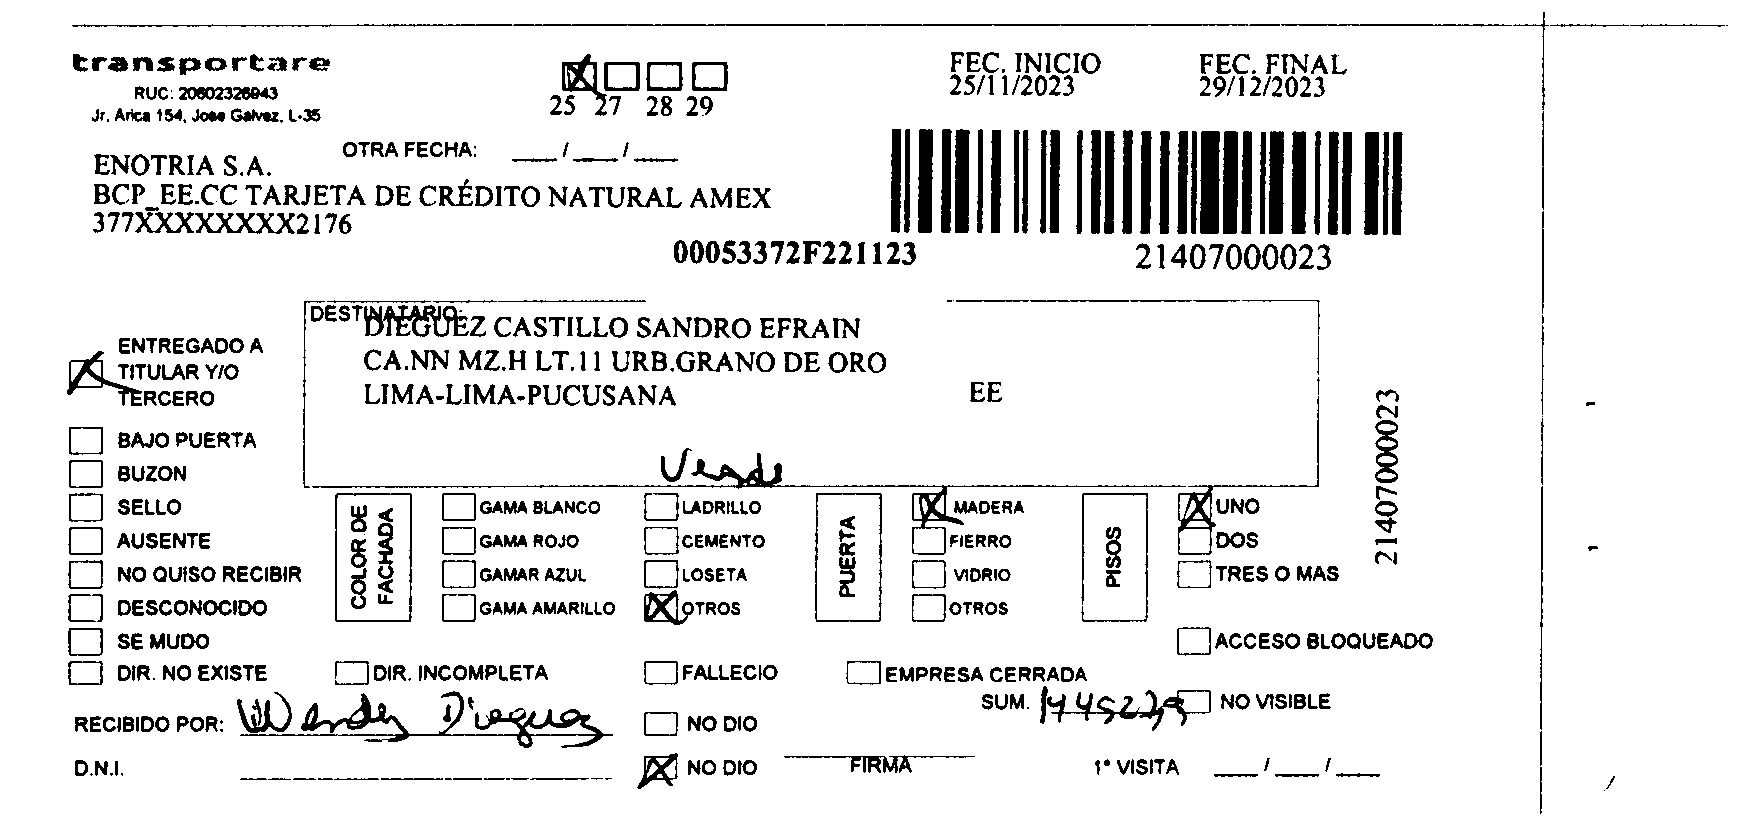 transportare
RUC: 20602326943
Jr. Arica 154, Jose Galvez, L-35
25 27 28 29
FEC. INICIO
25/11/2023
FEC. FINAL
29/12/2023
OTRA FECHA: ___/___/___
ENOTRIA S.A.
BCP_EE.CC TARJETA DE CRÉDITO NATURAL AMEX
377XXXXXXXXX2176
00053372F221123
21407000023
DESTINATARIO:
DIEGUEZ CASTILLO SANDRO EFRAIN
CA.NN MZ.H LT.11 URB.GRANO DE ORO
LIMA-LIMA-PUCUSANA EE
21407000023
Verde
ENTREGADO A
TITULAR Y/O
TERCERO
BAJO PUERTA
BUZON
SELLO
AUSENTE
NO QUISO RECIBIR
DESCONOCIDO
SE MUDO
DIR. NO EXISTE
COLOR DE
FACHADA
GAMA BLANCO
GAMA ROJO
GAMAR AZUL
GAMA AMARILLO
LADRILLO
CEMENTO
LOSETA
OTROS
PUERTA
MADERA
FIERRO
VIDRIO
OTROS
PISOS
UNO
DOS
TRES O MAS
ACCESO BLOQUEADO
DIR. INCOMPLETA
FALLECIO
EMPRESA CERRADA
SUM. 1445239
NO VISIBLE
RECIBIDO POR: Wendy Dieguez
NO DIO
D.N.I.
NO DIO
FIRMA
1° VISITA ___/___/___